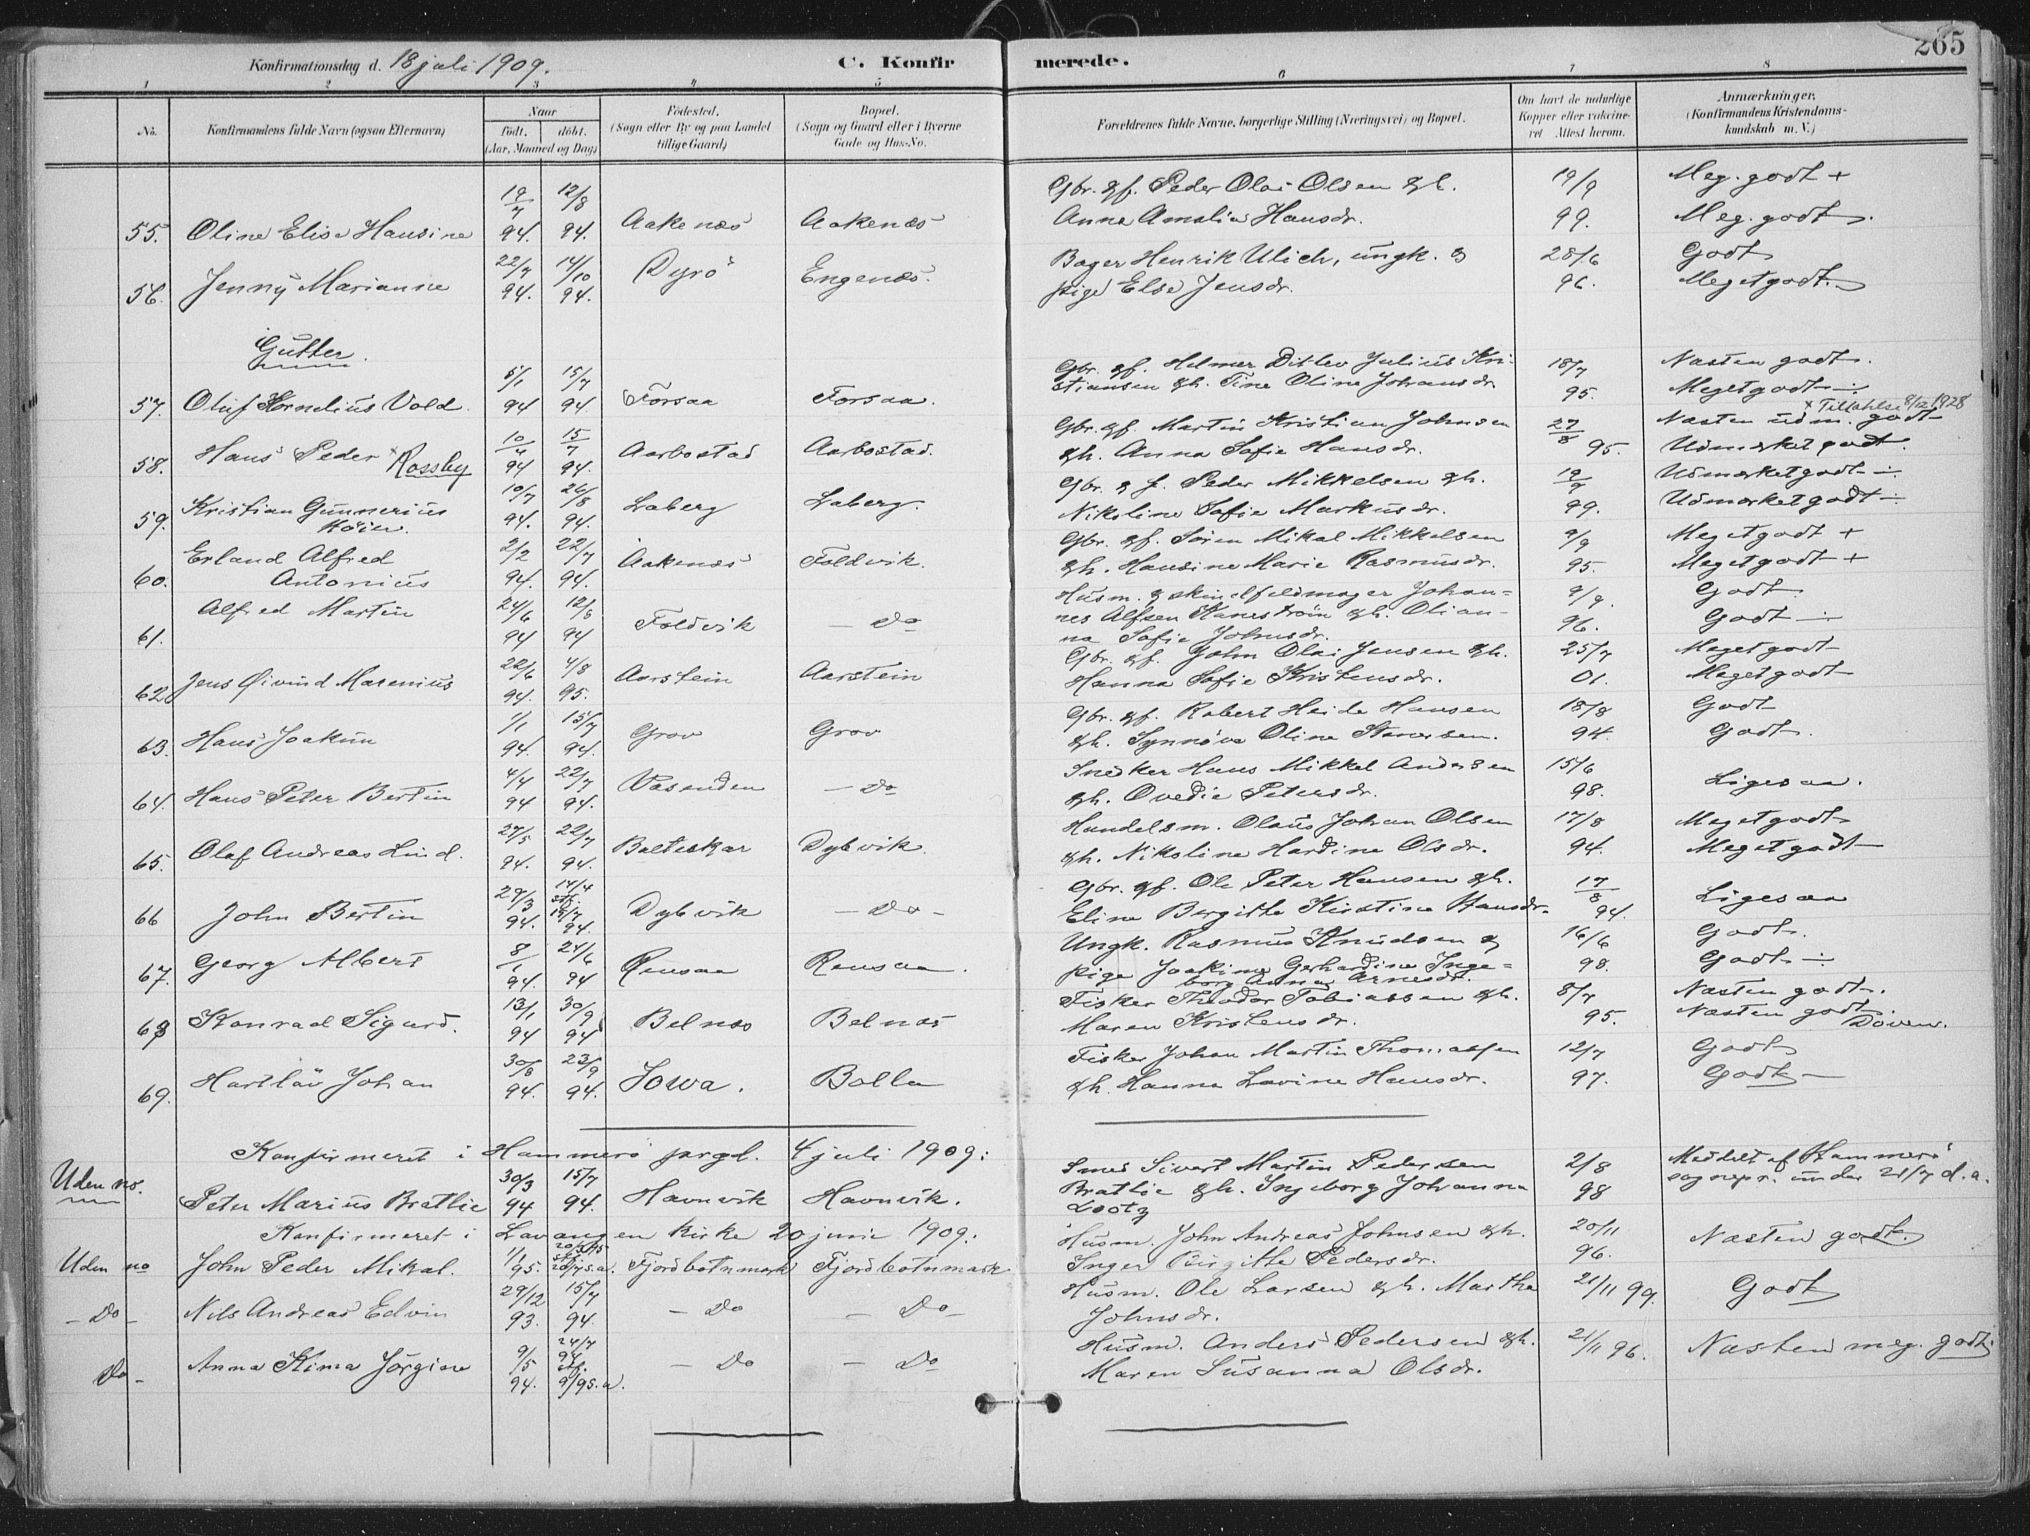 265
Konfirmationsdag d. 18 juli 1909.
C. Konfirmerede.
1 2 3 4 5 6 7 8
No.
Konfirmandens fulde Navn (ogsaa Efternavn)
Naar
født. døbt.
(Aar, Maaned og Dag)
Fødested.
(Sogn eller By og paa Landet
tillige Gaard)
Bopæl.
(Sogn og Gaard eller i Byerne
Gade og Hus-No.
Forældrenes fulde Navne, borgerlige Stilling (Næringsvei) og Bopæl.
Om havt de naturlige
Kopper eller vaccine-
ret Attest herom.
Anmærkninger.
(Konfirmandens Kristendoms-
kundskab m. V.)
19/7 12/8 Gbr. gf. Peder Olai Olsen gh. 19/9 Meg. godt +
55. Oline Elise Hansine 94. 94. Aakenæs Aakenæs Anna Amalia Hansdr. 99. Meg. godt.
22/7 14/10 Bager Henrik Ulich, ungk. g 28/6 Godt
56. Jenny Marianne 94. 94. Dyrö Engenæs. pige Else Jensdr. 96. Meget godt.
Gutter.
5/1 15/7 Gbr. gf. Helmer Ditlev Julius Kri- 18/7 Næsten godt.
57. Oluf Kornelius Vold. 94 94. Forsaa Forsaa. stiansen gh. Tine Oline Johansdr. 95. Meget godt ÷
x Tilføielse 8/12 1928
15/7 Gbr. gf. Martin Kristian Johnsen 27/8 Næsten udm. godt
58. Hans Peder x Rossby 94 94. Aarbostad Aarbostad. gh. Anna Sofie Hansdr. 95. Udmerket godt.
10/7 26/8 Gbr. g f. Peder Mikkelsen gh. Udmærket godt ÷
59. Kristian Gunnerius Höier. 94. 94. Laberg Laberg. Nikoline Sofie Markusdr. 99. Udmærket godt ÷
2/2 22/7 Gbr. gf. Sören Mikal Mikkelsen 9/9 Meget godt +
60. Erland Alfred Antonius 94. 94. Aakenæs Foldvik. gh. Hansine Marie Rasmusdr. 95. Meget godt +
24/6 12/8 Husm. g skindfeldmager Johan- 9/9. Godt
61. Alfred Martin 94 94 Foldvik — Do nes Alfsen Kanestrøm gh. Olian- 96. Godt ÷
na Sofie Johnsdr.
22/6 4/8 Gbr. gf. John Olai Jensen gh. 25/7 Meget godt
62. Jens Øivind Masenius 94. 95. Aarstein Aarstein Hanna Sofie Kristensdr. 01. Meget godt
1/1 15/7 Gbr. gf. Robert Heide Hansen 18/8 Godt
63. Hans Joakim 94. 94. Grov Grov gh. Synnöve Oline 94. Godt.
4/4 22/7 Snedker Hans Mikkel Andersen 15/6
64. Hans Peter Bertin 94 94. Vasenden — Do gh. Ovedie Petersdr. 98. Ligesaa.
27/5 22/7 Handelsm. Olaus Johan Olsen 17/8 Meget godt
65. Olaf Andreas Lind. 94. 94. Balteskar Dybvik. gh. Nikoline Hardine Olsdr. 94. Meget godt
14/4 stf. 15/7 Gbr. gf. Ole Peter Hansen gh. 17/8
66 John Bertin 94. 94. Dybvik — Do — Eline Bergitte Kirstine Hansdr. 94. Ligesaa
8/1 24/6 Ungk. Rasmus Knudsen g 16/6 Godt.
67. Georg Albert 94. 94 Rensaa Rensaa. pige Joakima Gerhardine Inge- 98. Godt ÷
borg Anna Arnesdr.
13/1 30/9 Fisker Theodor Tobiassen gh. 8/7 Næsten godt.
68 Konrad Sigurd. 94 94 Belnæs Belnæs Maren Kristensdr. 95. Næsten godt. Döven.
30/8 23/9 Fisker Johan Martin Thomassen 12/7 Godt
69. Hartlöv Johan 94. 94. Sowa. Bolla gh. Hanna Lovine Hansdr. 97. Godt —
Konfirmeret i Hammerö prgd. 4 juli 1909:
Uden no. 30/3 15/7 Smed Sivert Martin Pedersen 2/8 Meddelt af Hammerö
Peter Marius Brattlie 94 94. Havnvik Havnvik. Brattlie gh. Ingeborg Johanna 98 sognepr. under 21/7 d. a.
Lootz
Konfirmeret i Lavangen kirke 20 juni 1909:
1/1 Husm. John Andreas Johnsen gh. 20/11
Uden no John Peder Mikal. 95. Fjordbotnmark Fjordbotnmark Inger Birgitte Pedersdr. 96. Næsten godt.
29/12 15/7 Husm. Ole Larsen gh. Martha 21/11 99. Godt
— Do — Nils Andreas Edvin 93. 94. — Do — Do — Johnsdr.
9/5 24/7 94 stf. Husm. Anders Pedersen gh. 21/11 96. Næsten meg. godt.
Do — Anna Kima Jörgine 94. 9/95.a. — Do — Do Maren Susanna Olsdr.